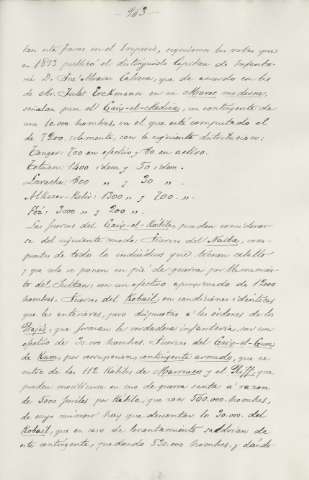 — 963 —
tan esta fuerza en el Imperio, seguiremos las notas que
en 1893 publicó el distinguido Capitan de Infante-
ria D. José Alvarez Cabrera, que de acuerdo con las
de Mr. Jules Erckmann en su Maroc moderne,
señalan para el Gaix-el-Medina, un contingente de
unos 10.000 hombres, en el que está computado el
de 7200 solamente, con la siguiente distribucion:
Tanger: 700 en efectivo y 60 en activo.
Tetuan: 1400 idem y 50 idem.
Larache: 800 „ y 30 „.
Alkazar-Kebir: 1300 „ y 200 „.
Fez: 3000 „ y 200 „.
Las fuerzas del Gaix-el-Kabila, pueden considerar-
se del siguiente modo; Fuerzas del Naiba, com-
puestas de todos los individuos que tienen caballo
y que solo se ponen en pie de guerra por llamamien-
to del Sultan, con un efectivo aproximado de 12000
hombres. Fuerzas del Kobail, en condiciones identicas
que las anteriores, pero dispuestas a las ordenes de los
que forman la verdadera infanteria con un
efectivo de 20.000 hombres. Fuerzas del Gaix-el-
de que componen contingente armado, que se
entre de las 112 Kabilas de Marruecos y el Riff, que
pueden movilizarse en caso de guerra santa á razon
de 5000 fusiles por Kabila, que son 560.000 hombres,
de cuyo número hay que descontar los 30.000 del
Kobail, que en caso de levantamiento saldrian de
este contingente, quedando 530.000 hombres, y dando